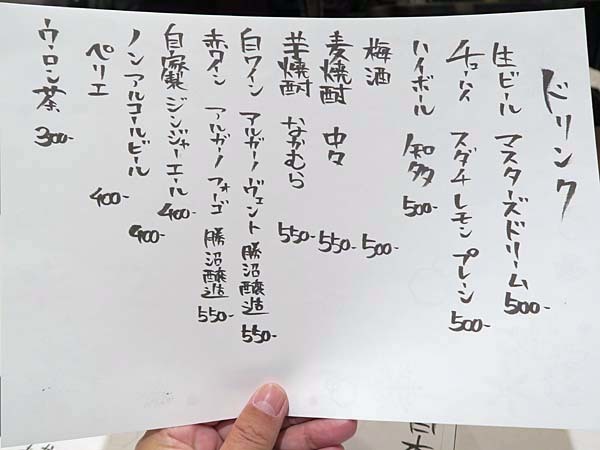 ドリンク
生ビール マスターズドリーム 500-
チューハイ スダチ レモン プレーン 500-
ハイボール 知多 500-
梅酒 500-
麦焼酎 中々 550-
芋焼酎 なかむら 550-
白ワイン アルガーノ ヴェント 勝沼醸造 550-
赤ワイン アルガーノ フォーゴ 勝沼醸造 550-
自家製 ジンジャーエール 400-
ノンアルコールビール 400-
ペリエ 400-
ウーロン茶 300-